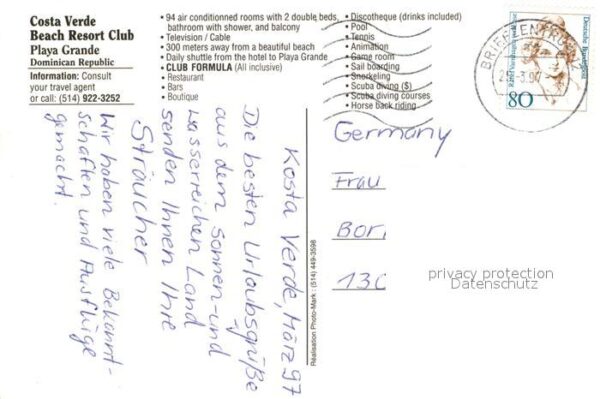 Costa Verde
Beach Resort Club
Playa Grande
Dominican Republic
Information: Consult
your travel agent
or call: (514) 922-3252
• 94 air conditioned rooms with 2 double beds,
bathroom with shower, and balcony
• Television / Cable
• 300 meters away from a beautiful beach
• Daily shuttle from the hotel to Playa Grande
• CLUB FORMULA (All inclusive)
• Restaurant
• Bars
• Boutique
• Discotheque (drinks included)
• Pool
• Tennis
• Animation
• Game room
• Sail boarding
• Snorkeling
• Scuba diving ($)
• Scuba diving courses
• Horse back riding
BRIEFZENTRUM
Deutsche Bundespost
80
Kosta Verde, März 97
Die besten Urlaubsgrüße
aus dem Sonnen- und
wasserreichen Land
senden Ihnen Ihre
Sträucher
Wir haben viele Bekannt-
schaften und Ausflüge
gemacht.
Réalisation Photo-Mark: (514) 449-3598
Germany
Frau
Bor
13
privacy protection
Datenschutz